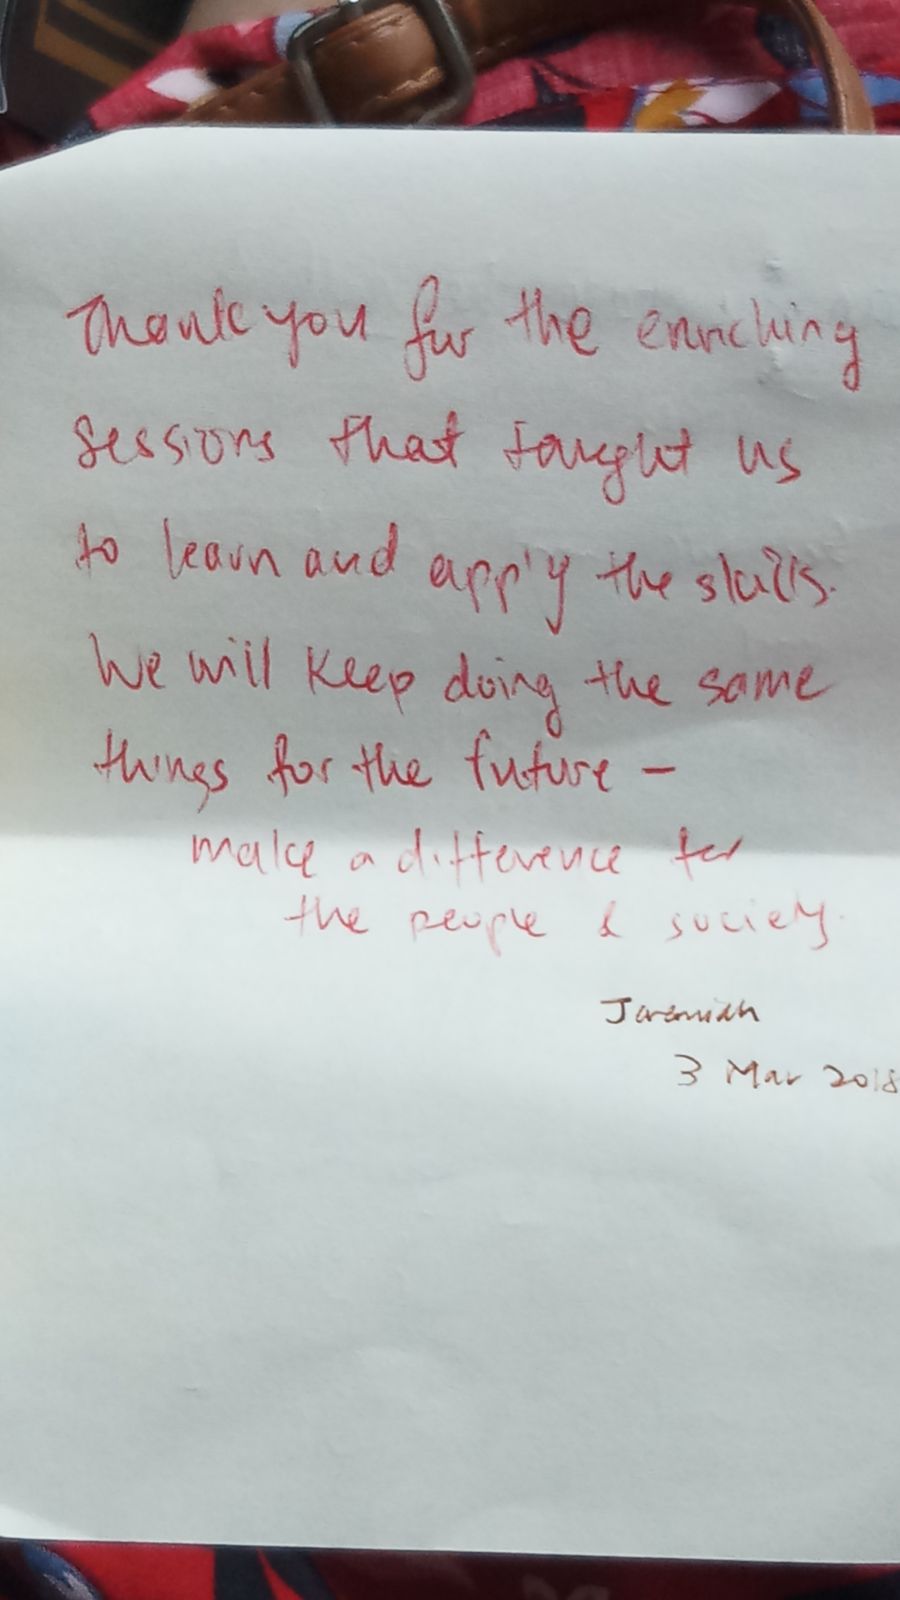 Thank you for the enriching
sessions that taught us
to learn and apply the skills.
We will keep doing the same
things for the future -
make a difference for
the people & society.
Jeremiah
3 Mar 2018